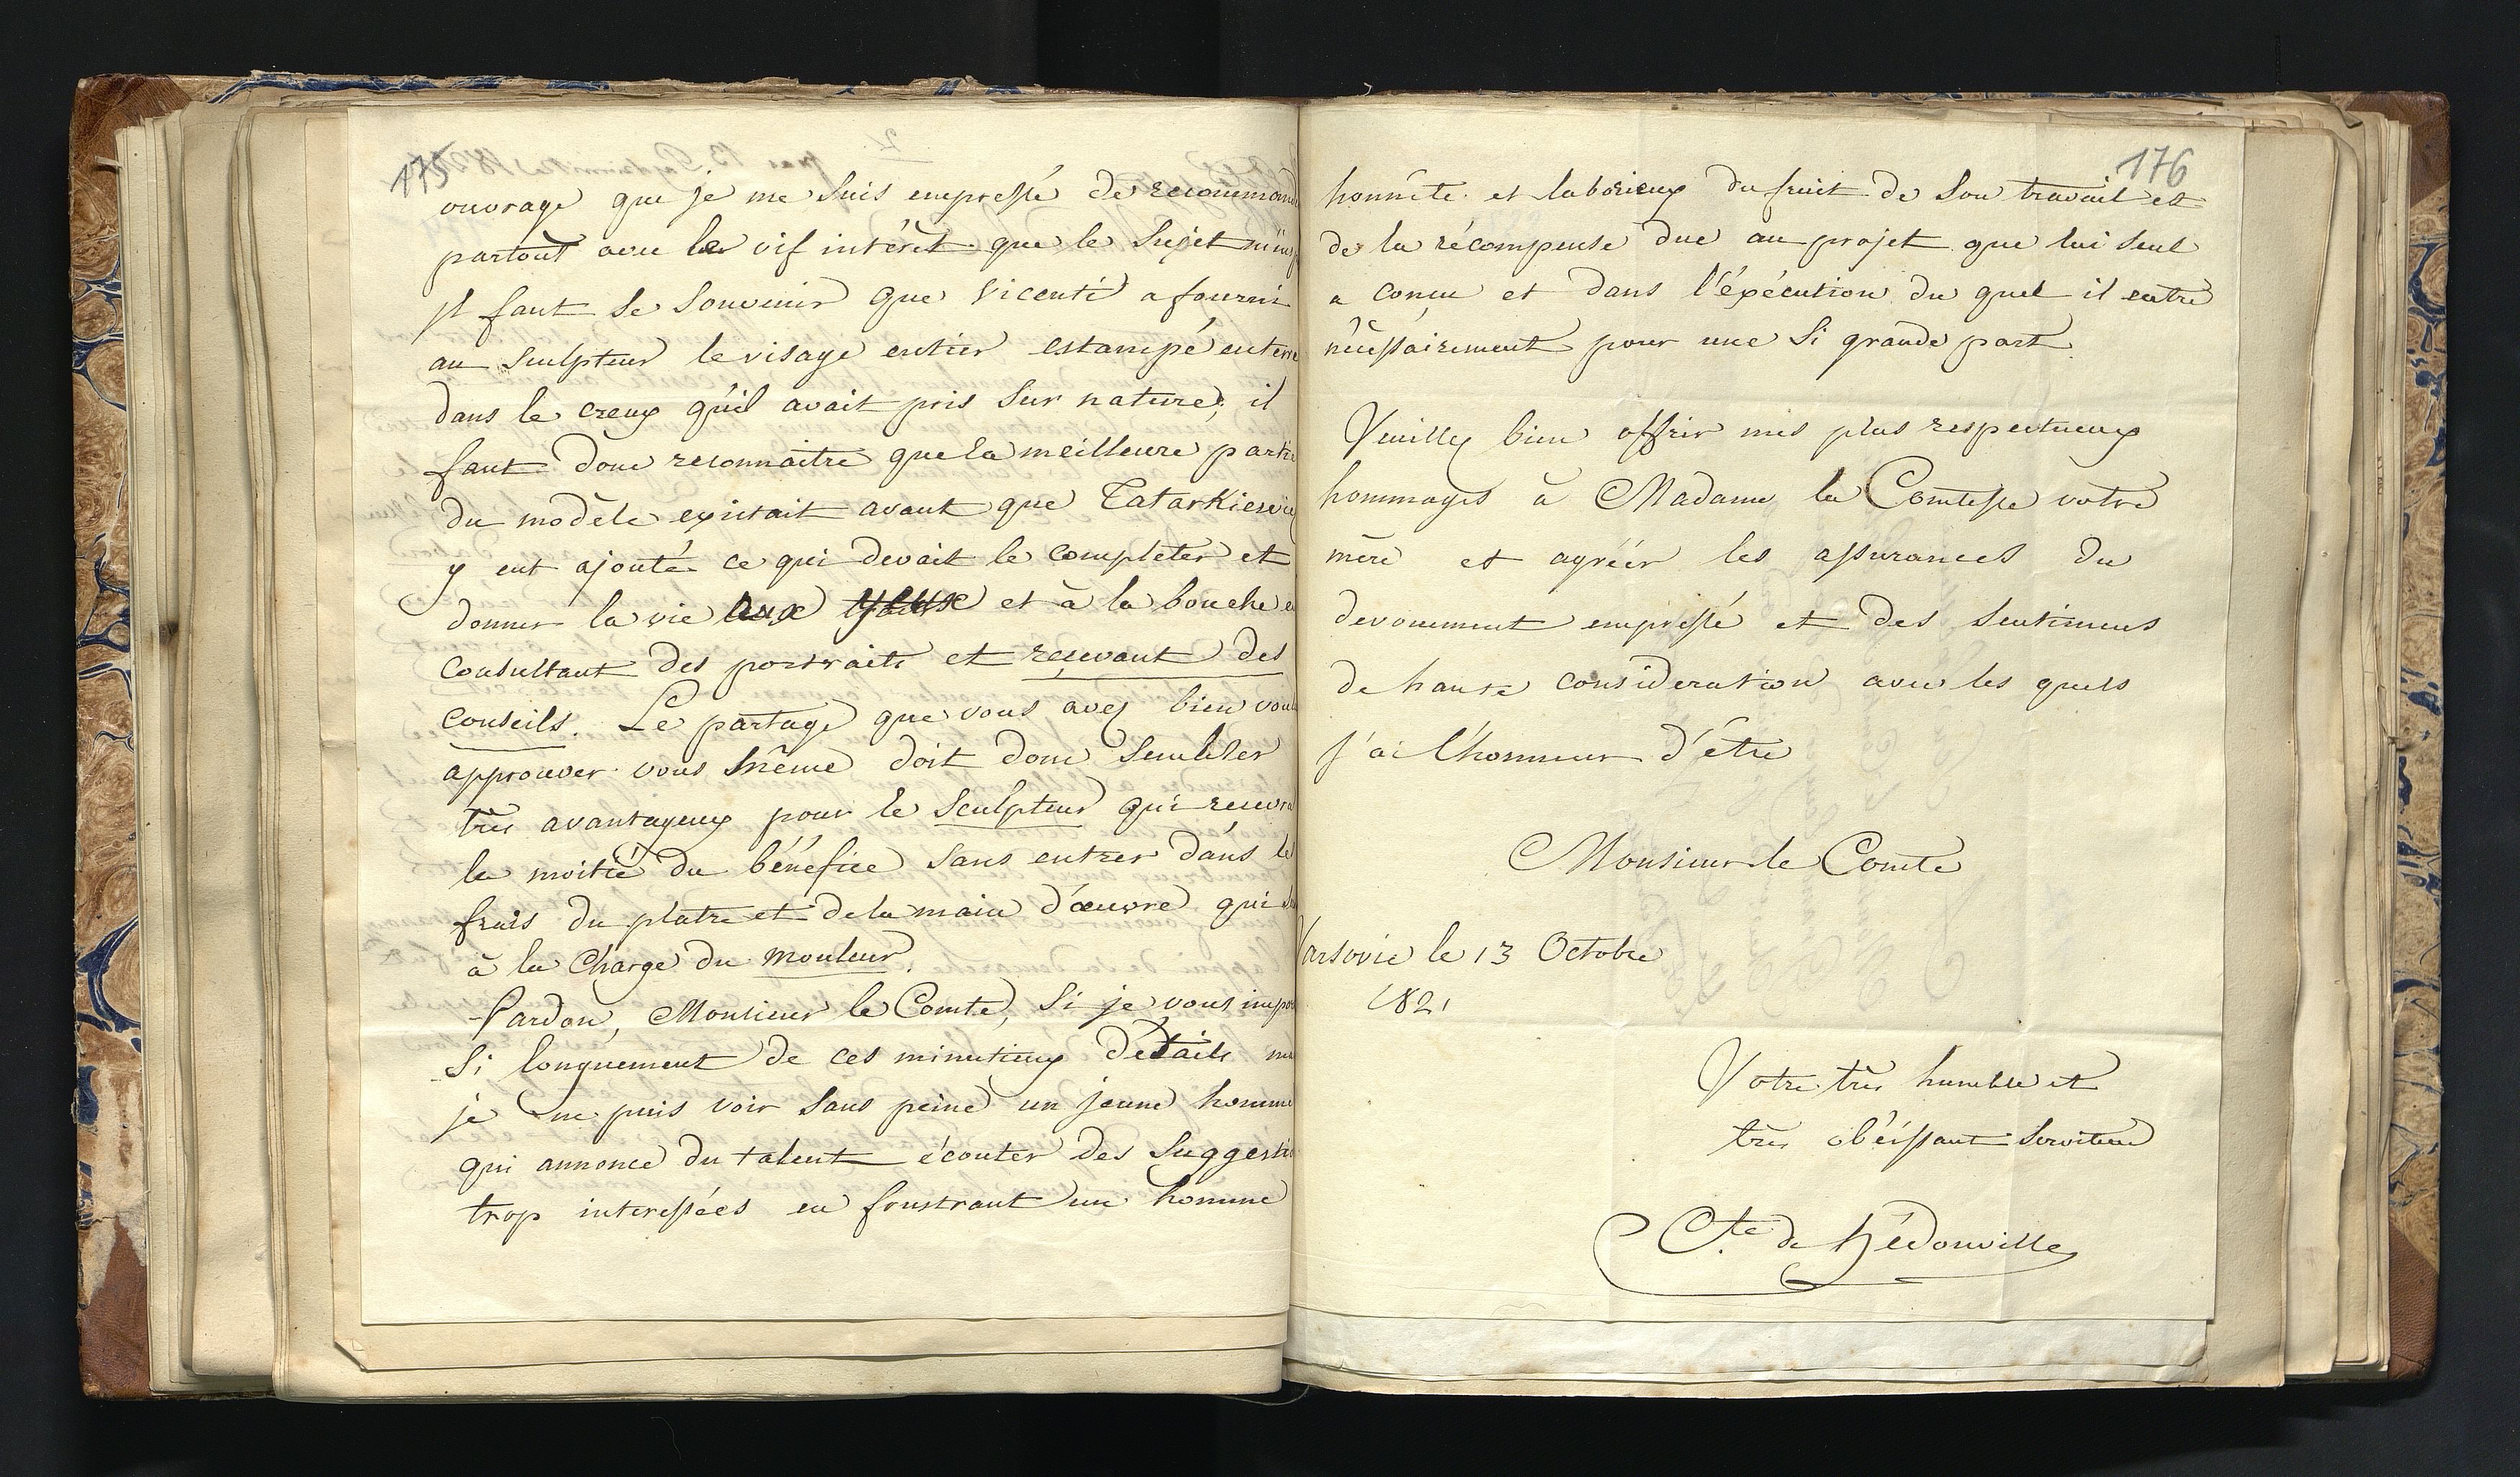 175
ouvrage que je me suis empressé de recommand
partout avec le vif intérêt que le sujet m'insp
il faut se souvenir que Vicenti a fourni
au sculpteur le visage entier estampé en terre
dans le creux qu'il avait pris sur nature; il
faut donc reconnaitre que la meilleure partie
du modèle existait avant que Tatarkiewic
y eut ajouté ce qui devait le completer et
donner la vie aux yeux et à la bouche en
consultant des portraits et reçevant des
conseils. Le partage que vous avez bien voul
approuver vous même doit donc sembler
très avantageux pour le sculpteur qui recevra
la moitié du bénéfice sans entrer dans les
frais du platre et de la main d'œuvre qui
à la charge du mouleur.
Pardon, Monsieur le Comte, si je vous impor
si longuement de ces minutieux détails
je ne puis voir sans peine un jeune homme
qui annonce du talent écouter des suggestio
trop interessées en frustrant un homme
176
honnête et laborieux du fruit de son travail et
de la récompense due au projet que lui seul
a conçu et dans l'éxécution du quel il entre
nécessairement pour une si grande part
Veuillez bien offrir mes plus respectueux
hommages à Madame la Comtesse votre
mère et agréér les assurances du
devouement empressé et des sentimens
de haute consideration avec les quels
j'ai l'honneur d'être
Monsieur le Comte
Varsovie le 13 Octobre
1821
Votre très humble et
très obéissant serviteur
Cte de Hédouville